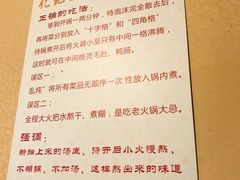 正确的吃法：
等到开锅一两分钟，待泡沫完全散去
再将菜分别放入“十字格”和“四角格”
待锅煮开后将火调小至只有中间一格沸腾
这时就可在中间格烫毛肚、鸭肠。
误区一：
乱炖”将所有菜品无顺序一次 性放入锅内煮。
误区二：
全程大火把水熬干、煮糊，是吃老火锅大忌。
强调：
新端上来的汤底，待开后小火慢熬，
不糊锅，不加汤，这样熬出来的味道